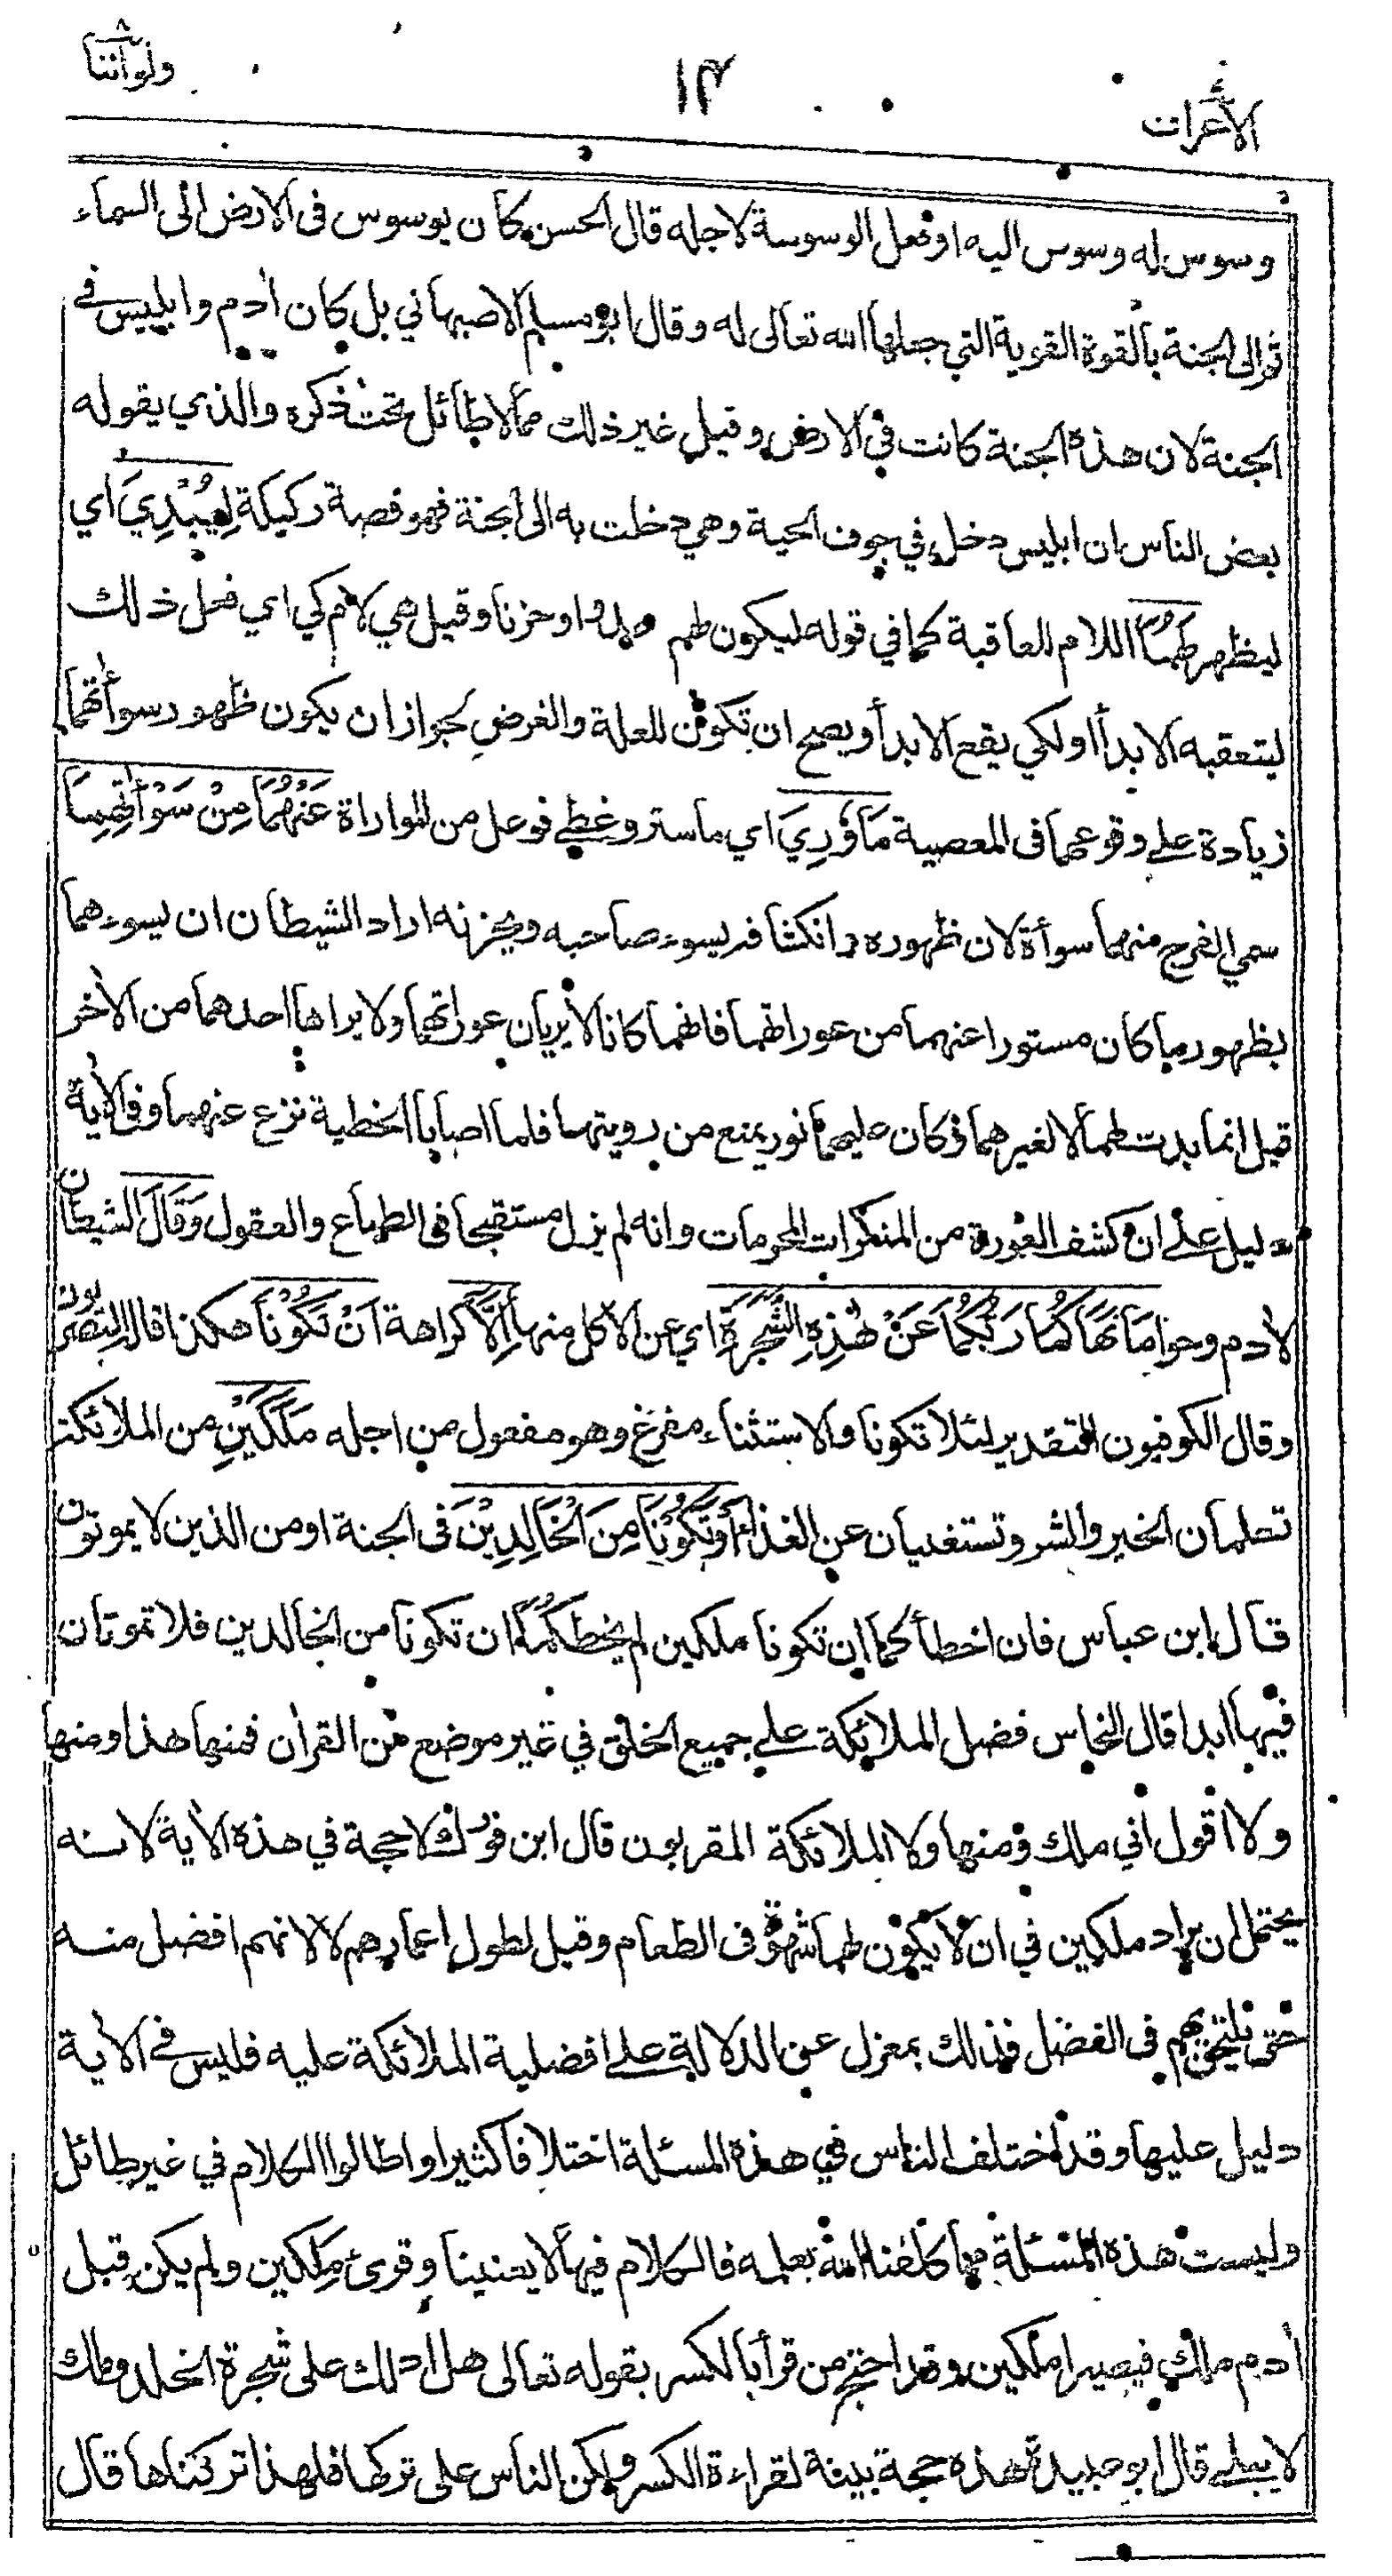 ولو أننا
١٣
الأعراف
وسوس له وسوس اليه او فعل الوسوسة لاجله قال الحسن كان يوسوس في الارض الى السماء
ثم الى الجنة بالقوة القوية التي جعلها الله تعالى له وقال ابو مسلم الاصبهاني بل كان أدم وابليس في
الجنة لان هذه الجنة كانت في الارض وقيل غير ذلك مما لا طائل تحت ذكره والذي يقوله
بعض الناس ان ابليس دخل في جوف الحية وهي دخلت به الى الجنة فهو قصة ركيكة لِيُبْدِيَ اي
ليظهر لَهُمَا اللام للعاقبة كما في قوله ليكون لهم عدوا وحزنا وقيل هي لام كي اي فعل ذلك
ليتعقبه الابدأ او لكي يقع الابدأ ويصح ان تكون للعلة والغرض لجواز ان يكون ظهور سوأتهما
زيادة على وقوعهما في المعصية مَا وُرِيَ اي ما ستر وغطي فوعل من المواراة عَنْهُمَا مِنْ سَوْأَتِهِمَا
سمي الفرج منهما سوأة لان ظهوره وانكشافه يسوء صاحبه ويحزنه اراد الشيطان ان يسوءهما
بظهور ما كان مستورا عنهما من عوراتهما فانهما كانا لا يريان عوراتهما ولا يراها احدهما من الأخر
قيل انما بدت لهما لا لغيرهما وكان عليهما نور يمنع من رويتهما فلما اصابا الخطية نزع عنهما وفي الأية
دليل على ان كشف العورة من المنكرات المحرمات وانه لم يزل مستقبحا في الطباع والعقول وَقَالَ الشيطان
لأدم وحوا مَا نَهَاكُمَا رَبُّكُمَا عَنْ هٰذِهِ الشَّجَرَةِ اي عن الاكل منها إِلَّا كراهة اَنْ تَكُوْنَا هكذا قال البصريون
وقال الكوفيون التقدير لئلا تكونا والاستثناء مفرغ وهو مفعول من اجله مَلَكَيْنِ من الملائكة
تعلمان الخير والشر وتستغنيان عن الغذاء أَوْ تَكُوْنَا مِنَ الْخَالِدِيْنَ في الجنة او من الذين لا يموتون
قال ابن عباس فان اخطأكما ان تكونا ملكين لم يخطكما ان تكونا من الخالدين فلا تموتان
فيها ابدا قال النحاس فضل الملائكة على جميع الخلق في غير موضع من القرأن فمنها هذا ومنها
ولا اقول اني ملك ومنها ولا الملائكة المقربون قال ابن فورك لا حجة في هذه الأية لانه
يحتمل ان يراد ملكين في ان لا يكون لهما شهوة في الطعام وقيل لطول اعمارهم لا لانهم افضل منه
حتى يلتحق بهم في الفضل فذلك بمعزل عن الدلالة على افضلية الملائكة عليه فليس في الأية
دليل عليها وقد اختلف الناس في هذه المسئلة اختلافا كثيرا واطالوا الكلام في غير طائل
وليست هذه المسئلة مما كلفنا الله بعلمه فالكلام فيها لا يعنينا وقرئ مَلِكين ولم يكن قبل
أدم ملك فيصيرا ملكين وقد احتج من قرأ بالكسر بقوله تعالى هل ادلك على شجرة الخلد وملك
لا يبلى قال ابو عبيدة هذه حجة بينة لقراءة الكسر ولكن الناس على تركها فلهذا تركناها قال